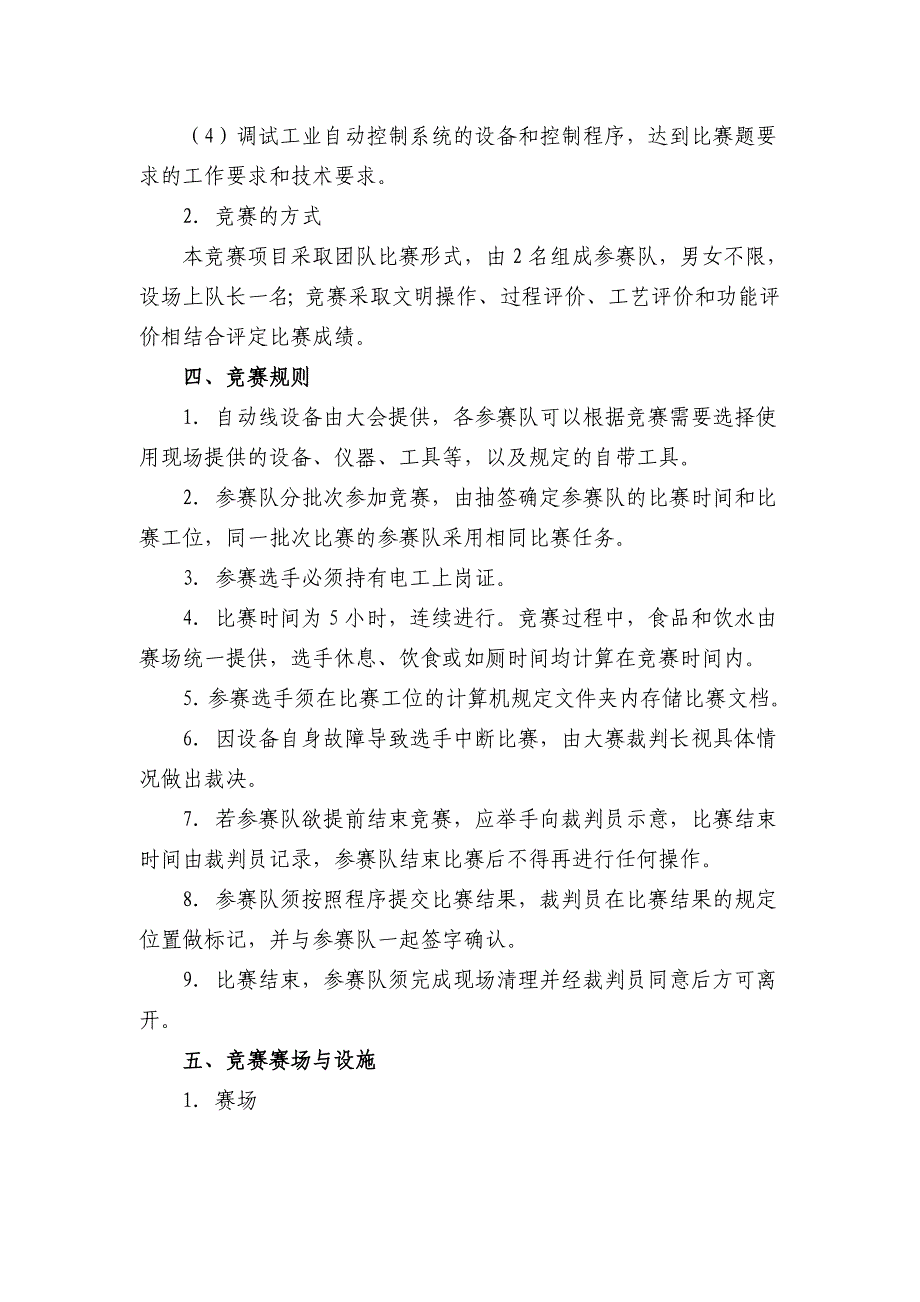 （4）调试工业自动控制系统的设备和控制程序，达到比赛题要
求的工作要求和技术要求。
2. 竞赛的方式
本竞赛项目采取团队比赛形式，由 2 名组成参赛队，男女不限，
设场上队长一名；竞赛采取文明操作、过程评价、工艺评价和功能评
价相结合评定比赛成绩。
四、竞赛规则
1. 自动线设备由大会提供，各参赛队可以根据竞赛需要选择使
用现场提供的设备、仪器、工具等，以及规定的自带工具。
2. 参赛队分批次参加竞赛，由抽签确定参赛队的比赛时间和比
赛工位，同一批次比赛的参赛队采用相同比赛任务。
3. 参赛选手必须持有电工上岗证。
4. 比赛时间为 5 小时，连续进行。竞赛过程中，食品和饮水由
赛场统一提供，选手休息、饮食或如厕时间均计算在竞赛时间内。
5. 参赛选手须在比赛工位的计算机规定文件夹内存储比赛文档。
6. 因设备自身故障导致选手中断比赛，由大赛裁判长视具体情
况做出裁决。
7. 若参赛队欲提前结束竞赛，应举手向裁判员示意，比赛结束
时间由裁判员记录，参赛队结束比赛后不得再进行任何操作。
8. 参赛队须按照程序提交比赛结果，裁判员在比赛结果的规定
位置做标记，并与参赛队一起签字确认。
9. 比赛结束，参赛队须完成现场清理并经裁判员同意后方可离
开。
五、竞赛赛场与设施
1. 赛场